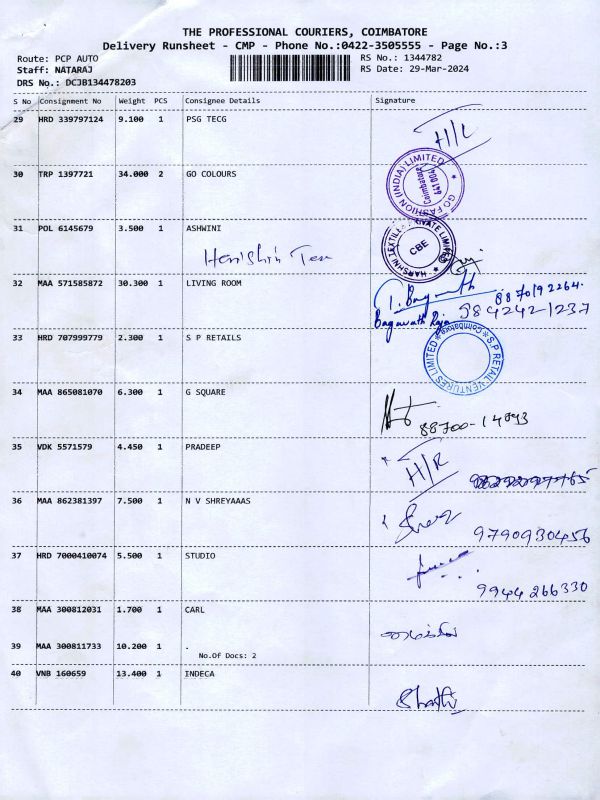 THE PROFESSIONAL COURIERS, COIMBATORE
Delivery Runsheet - CMP - Phone No.:0422-3505555 - Page No.:3
Route: PCP AUTO RS No.: 1344782
Staff: NATARAJ RS Date: 29-Mar-2024
DRS No.: DCJB134478203
S No Consignment No Weight PCS Consignee Details Signature
29 HRD 339797124 9.100 1 PSG TECG
H/L
30 TRP 1397721 34.000 2 GO COLOURS
GO FASHION (INDIA) LIMITED
Coimbatore
641 004
31 POL 6145679 3.500 1 ASHWINI
HARSHNI TEXTILES PRIVATE LIMITED
CBE
32 MAA 571585872 30.300 1 LIVING ROOM
8870192264.
Bagavath Raja 9842421237
33 HRD 707999779 2.300 1 S P RETAILS
S.P RETAIL VENTURES LIMITED
Coimbatore
34 MAA 865081070 6.300 1 G SQUARE
88700-14893
35 VDK 5571579 4.450 1 PRADEEP
H/R
36 MAA 862381397 7.500 1 N V SHREYAAAS
9790930456
37 HRD 7000410074 5.500 1 STUDIO
9944266330
38 MAA 300812031 1.700 1 CARL
39 MAA 300811733 10.200 1 .
No.Of Docs: 2
40 VNB 160659 13.400 1 INDECA